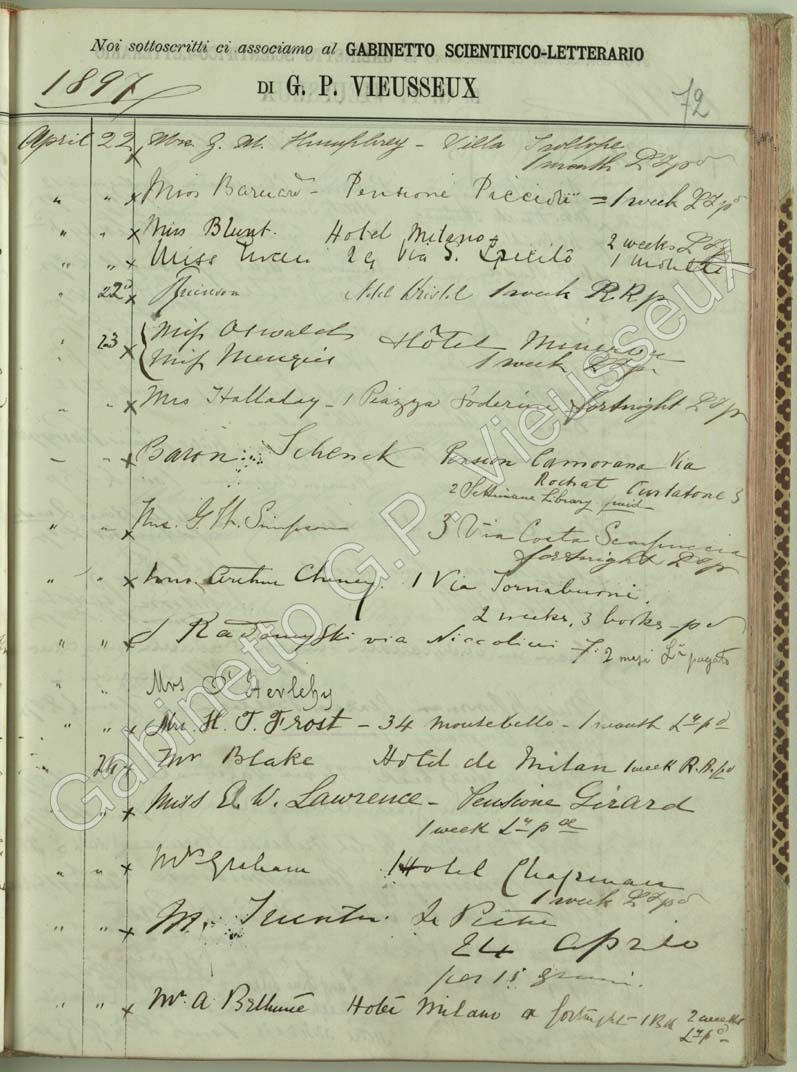 Noi sottoscritti ci associamo al GABINETTO SCIENTIFICO-LETTERARIO
DI G. P. VIEUSSEUX
1897
72
April 22 x Mrs. G. M. Humphrey - Villa Trollope
1 month Lʸ pd
" " x Miss Barnard - Pensione Piccioli = 1 week Lʸ pd
" " x Miss Blunt. Hotel Milano 2 weeks Lʸ
" " x Miss 29 Via S. Spirito 1 month
" 22 x Hotel Bristol 1 week R.R p
" 23 x Miss Oswald
Miss Menzies Hôtel Minerva
1 week Lʸ p.
" " x Mrs Halladay - 1 Piazza Soderini fortnight Lʸ p
" " x Baron Schenck Pension Camorana Via
Rochat Curtatone 3
2 Settimane Library paid
" " x Mrs. G. W. Simpson 3 Via Costa Scarpuccia
fortnight Lʸ p
" " x Mrs. Arthur Cheney. 1 Via Tornabuoni.
2 weeks, 3 books - pd
" " x J Radomyski via Niccolini 7. 2 mesi Lʸ pagato
" " Mrs O'
" " x Mrs. H. T. Frost - 34 Montebello - 1 month Lʸ pd
24 x Mr Blake Hotel de Milan 1 week R.R. pd
" " x Miss E. W. Lawrence - Pensione Girard
1 week Lʸ pd
" " x Mrs Graham Hotel Chapman
1 week Lʸ pd
" " x M.
24 Aprile
per 15 giorni.
" " x Mr. A Bethune Hotel Milano a fortnight - 1 Bk 2 weeks
Lʸ pd
Gabinetto G. P. Vieusseux